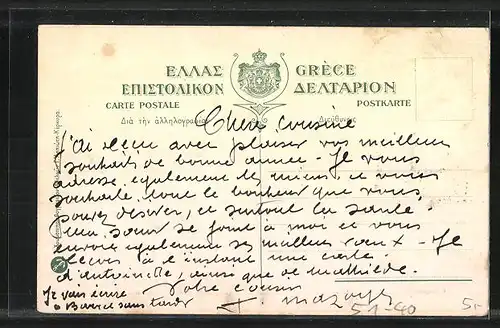 ΕΛΛΑΣ GRÈCE
ΕΠΙΣΤΟΛΙΚΟΝ ΔΕΛΤΑΡΙΟΝ
CARTE POSTALE POSTKARTE
Διὰ τὴν ἀλληλογραφίαν Διεύθυνσις
Chère cousine
J'ai reçu avec plaisir vos meilleurs
souhaits de bonne année - Je vous
adresse également les miens et vous
souhaite tout le bonheur que vous
pouvez désirer, et surtout la santé.
ma sœur se joint à moi et vous
envoie également ses meilleurs vœux - Je
reçois à l'instant une carte
d'Antoinette, ainsi que de Mathilde.
Je vais écrire Votre cousin
sans tarder
51-40
5.-